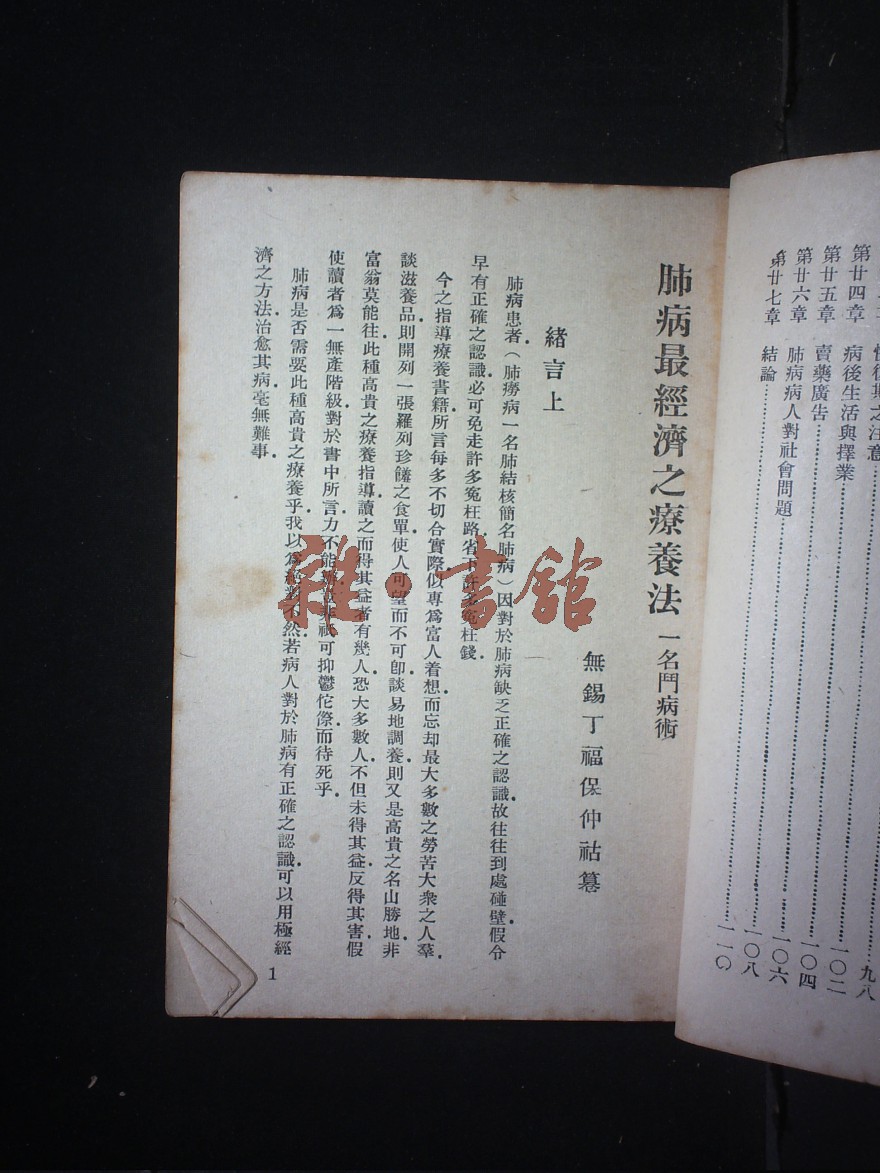 第廿四章　病後生活與擇業……一〇二
第廿五章　賣藥廣告……一〇四
第廿六章　肺病病人對社會問題……一〇六
第廿七章　結論……一〇八
一一〇
九八
肺病最經濟之療養法 一名鬥病術
無錫丁福保仲祜纂
緒言上
肺病患者．（肺癆病一名肺結核簡名肺病）因對於肺病缺乏正確之認識．故往往到處碰壁．假令
早有正確之認識．必可免走許多冤枉路．省下許多冤枉錢．
今之指導療養書籍．所言每多不切合實際．似專爲富人着想．而忘却最大多數之勞苦大衆之人羣．
談滋養品．則開列一張羅列珍饈之食單．使人可望而不可卽．談易地調養．則又是高貴之名山勝地．非
富翁莫能往．此種高貴之療養指導．讀之而得其益者有幾人．恐大多數人．不但未得其益．反得其害．假
使讀者爲一無產階級．對於書中所言．力不能．非祇可抑鬱侘傺而待死乎．
肺病是否需要此種高貴之療養乎．我以爲絕對不然．若病人對於肺病有正確之認識．可以用極經
濟之方法．治愈其病．毫無難事．
1
雜·書館